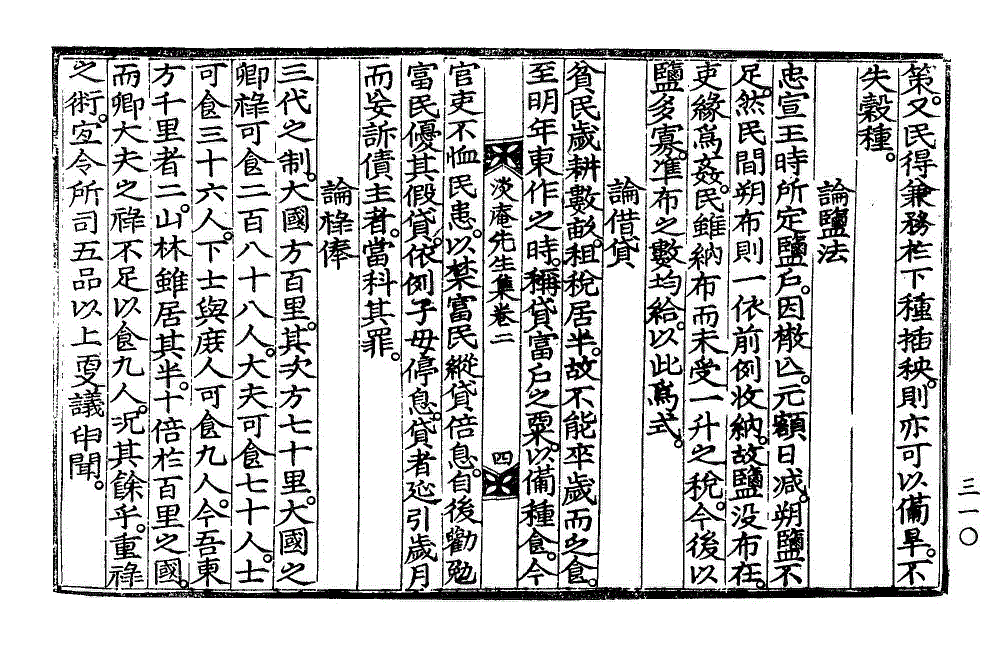 策。又民得兼務於下種插秧。則亦可以備旱。不
失穀種。
論鹽法
忠宣王時所定鹽戶。因散亡。元額日减。朔鹽不
足。然民間朔布則一依前例收納。故鹽没布在。
吏緣爲姦。民雖納布而未受一升之稅。今後以
鹽多寡。准布之數均給。以此爲式。
論借貸
貧民歲耕數畝。租稅居半。故不能卒歲而乏食。
至明年東作之時。稱貸富戶之粟。以備種食。今
淡庵先生集卷二 四
官吏不恤民患。以禁富民縱貸倍息。自後勸勉
富民優其假貸。依例子母停息。貸者延引歲月
而妄訴債主者。當科其罪。
論祿俸
三代之制。大國方百里。其次方七十里。大國之
卿祿可食二百八十八人。大夫可食七十人。士
可食三十六人。下士與庶人可食九人。今吾東
方千里者二。山林雖居其半。十倍於百里之國。
而卿大夫之祿不足以食九人。况其餘乎。重祿
之術。宜令所司五品以上更議申聞。
三一〇